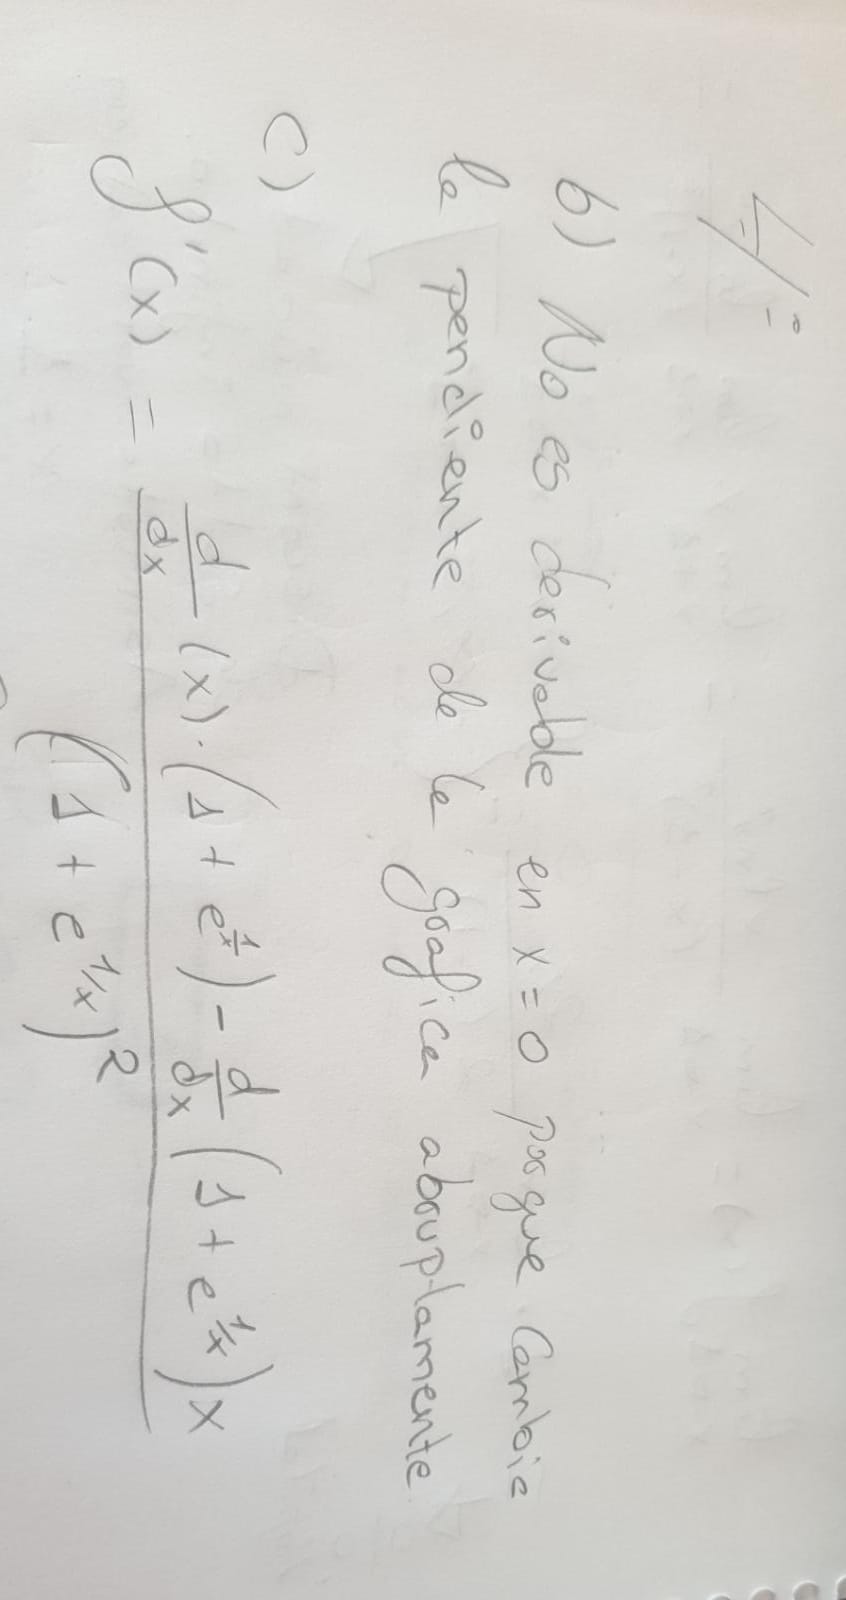 4/:
b) No es derivable en x = 0 porque cambia
la pendiente de la grafica abruptamente
c)
f'(x) = d/dx (x) · (1 + e^(1/x)) - d/dx (1 + e^(1/x)) x
(1 + e^(1/x))^2